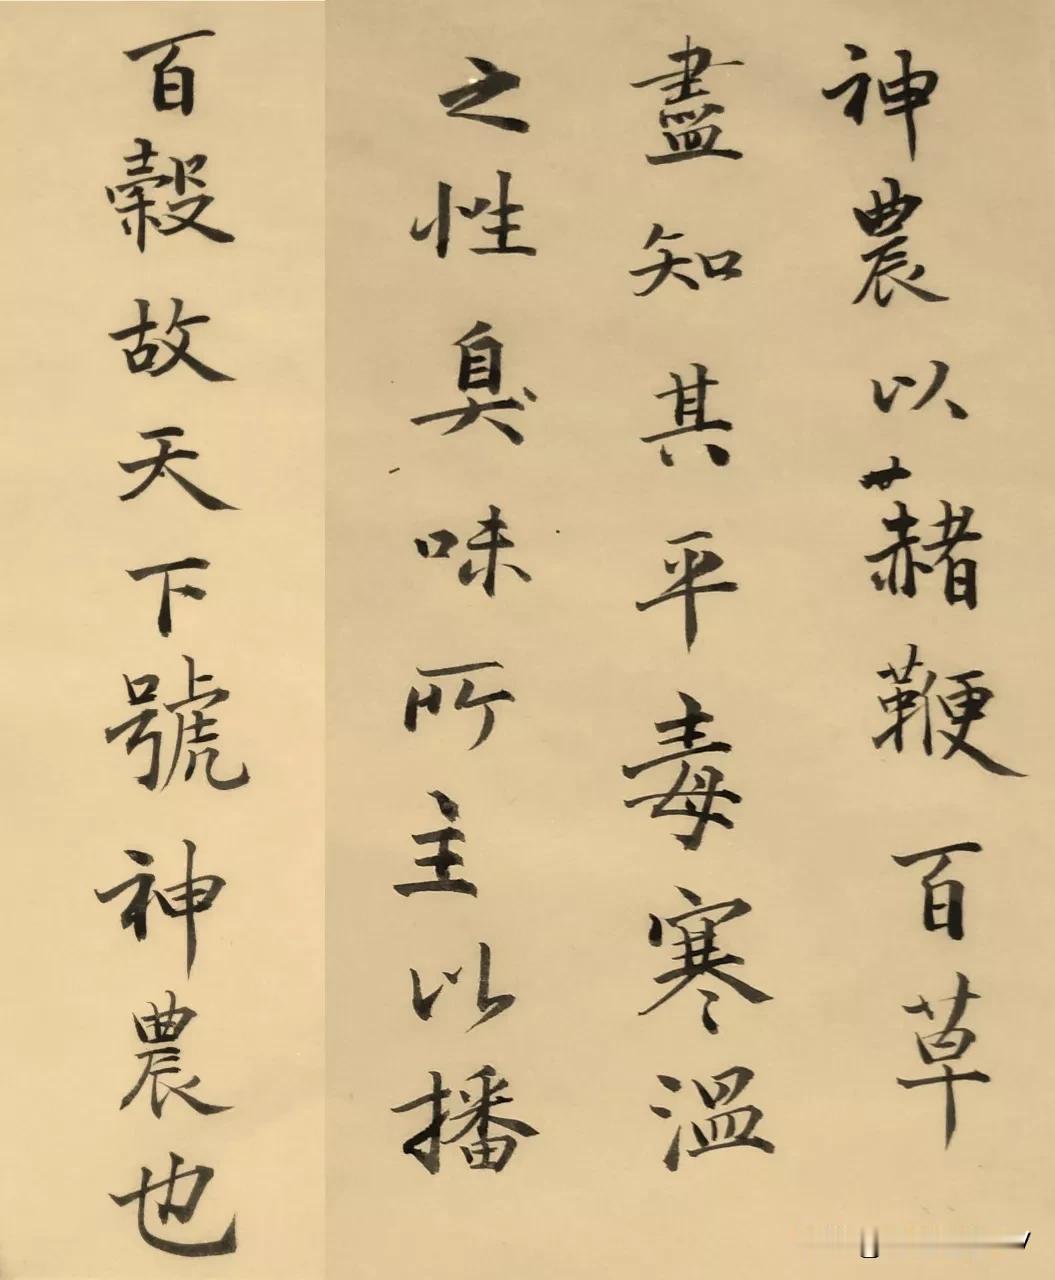 神農以赭鞭百草
盡知其平毒寒溫
之性臭味所主以播
百穀故天下號神農也